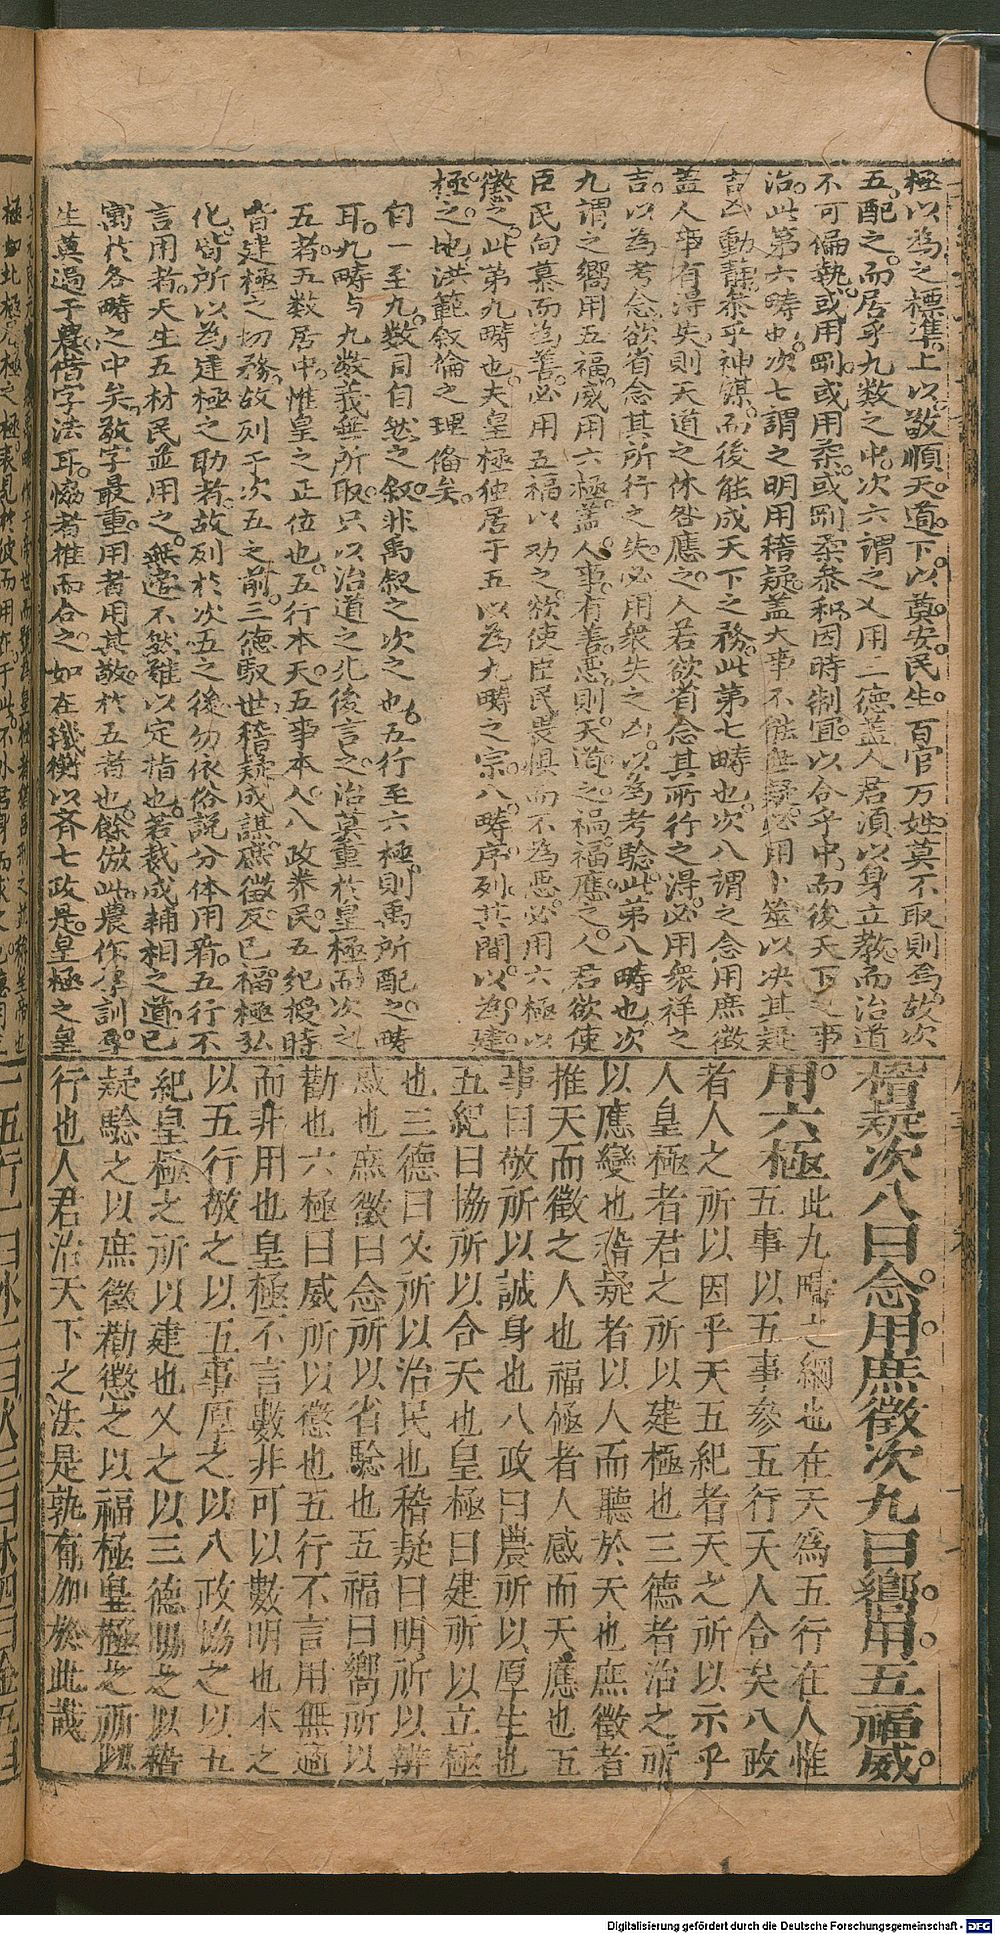 極以為之標準上以敬順天道下以奠安民生百官万姓莫不取則焉故次
五配之而居乎九數之中次六謂之乂用三德蓋人君須以身立教而治道
不可偏執或用剛或用柔或剛柔叅和因時制宜以合乎中而後天下之事
治此第六畴也次七謂之明用稽疑盖大事不能無疑必用卜筮以决其疑
吉凶動静叅乎神謀而後能成天下之務此第七畴也次八謂之念用庶徵
盖人事有淂失則天道之休咎應之人若欲省念其所行之淂必用衆祥之
吉以為考念欲省念其所行之失必用衆失之凶以為考騐此第八畴也次
九謂之嚮用五福威用六極蓋人事有善惡則天道之禍福應之人君欲使
臣民向慕而為善必用五福以劝之欲使臣民畏惧而不為惡必用六極以
懲之此第九畴也夫皇極独居于五以為九畴之宗八畴序列其間以為建
極之地洪範叙倫之理俻矣
自一至九数司自然之叙非禹叙之次之也五行至六極則禹所配之畴
耳九畴与九数義無所取只以治道之先後言之治莫重於皇極而次之
五者五数居中惟皇之正位也五行本天五事本人八政养民五紀授時
皆建極之切務故列于次五之前三徳馭世稽疑成謀庶徵反已福極弘
化皆所以為建極之助者故列於次五之後勿依俗説分体用看五行不
言用者天生五材民並用之無適不然难以定指也若裁成輔相之道已
寓於各畴之中矣敬字最重用者用其敬於五者也餘倣此農作厚訓厚
生莫過于農借字法耳恊者推而合之如在璣衡以齐七政是皇極之皇
稽疑次八曰念用庶徵次九曰嚮用五福威
用六極
此九疇之綱也在天為五行在人惟
五事以五事參五行天人合矣八政
者人之所以因乎天五紀者天之所以示乎
人皇極者君之所以建極也三德者治之所
以應變也稽疑者以人而聽於天也庶徵者
推天而徵之人也福極者人感而天應也五
事曰敬所以誠身也八政曰農所以厚生也
五紀曰協所以合天也皇極曰建所以立極
也三德曰乂所以治民也稽疑曰明所以辨
惑也庶徵曰念所以省驗也五福曰嚮所以
勸也六極曰威所以懲也五行不言用無適
而非用也皇極不言數非可以數明也本之
以五行敬之以五事厚之以八政協之以五
紀皇極之所以建也乂之以三德明之以稽
疑驗之以庶徵勸懲之以福極皇極之所以
行也人君治天下之法是孰有加於此哉
一五行一曰水二曰火三曰木四曰金五曰
Digitalisierung gefördert durch die Deutsche Forschungsgemeinschaft - DFG